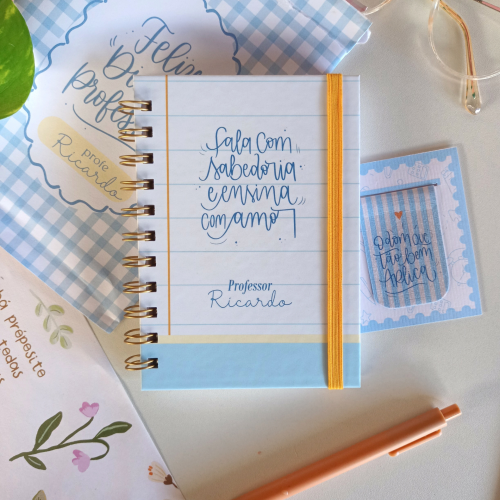 Feliz
Di
profes
profe
Ricardo
Fala com
sabedoria
e ensina
com amor
Professor
Ricardo
O dom que
tão bem
Aplica
há propósito
todas